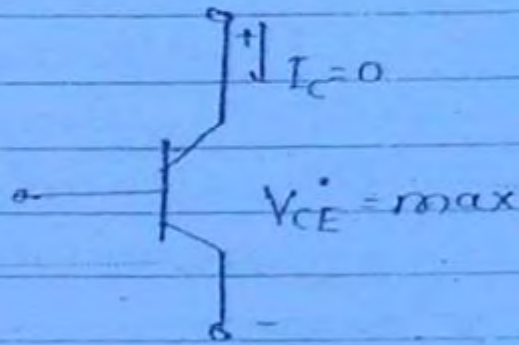 +
I_C=0
V_CE=max
-